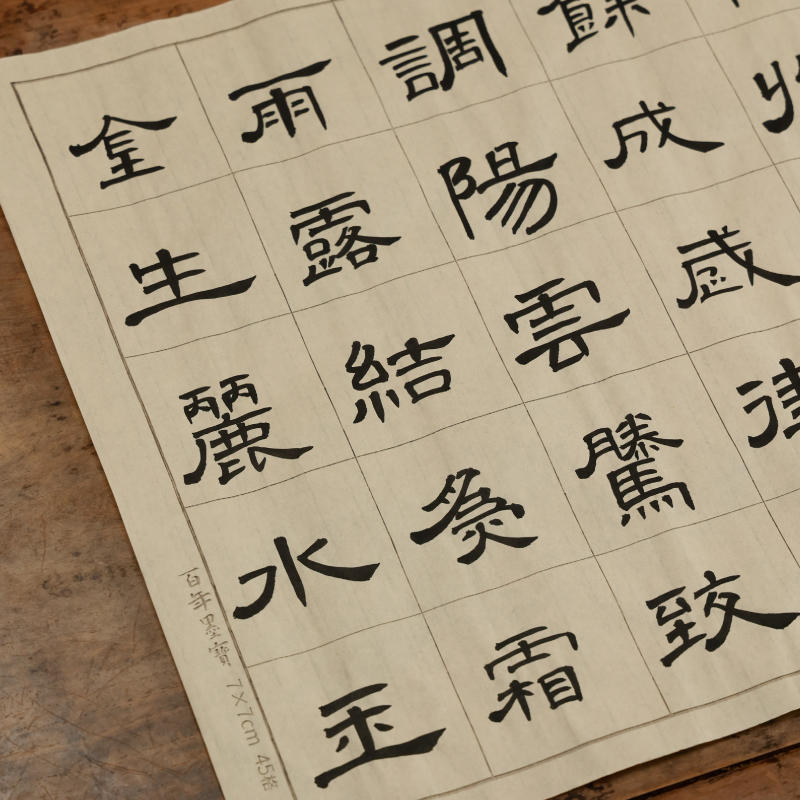 餘成歲律
調陽雲騰致
雨露結為霜
金生麗水玉
百年墨寶 7×7cm 45格